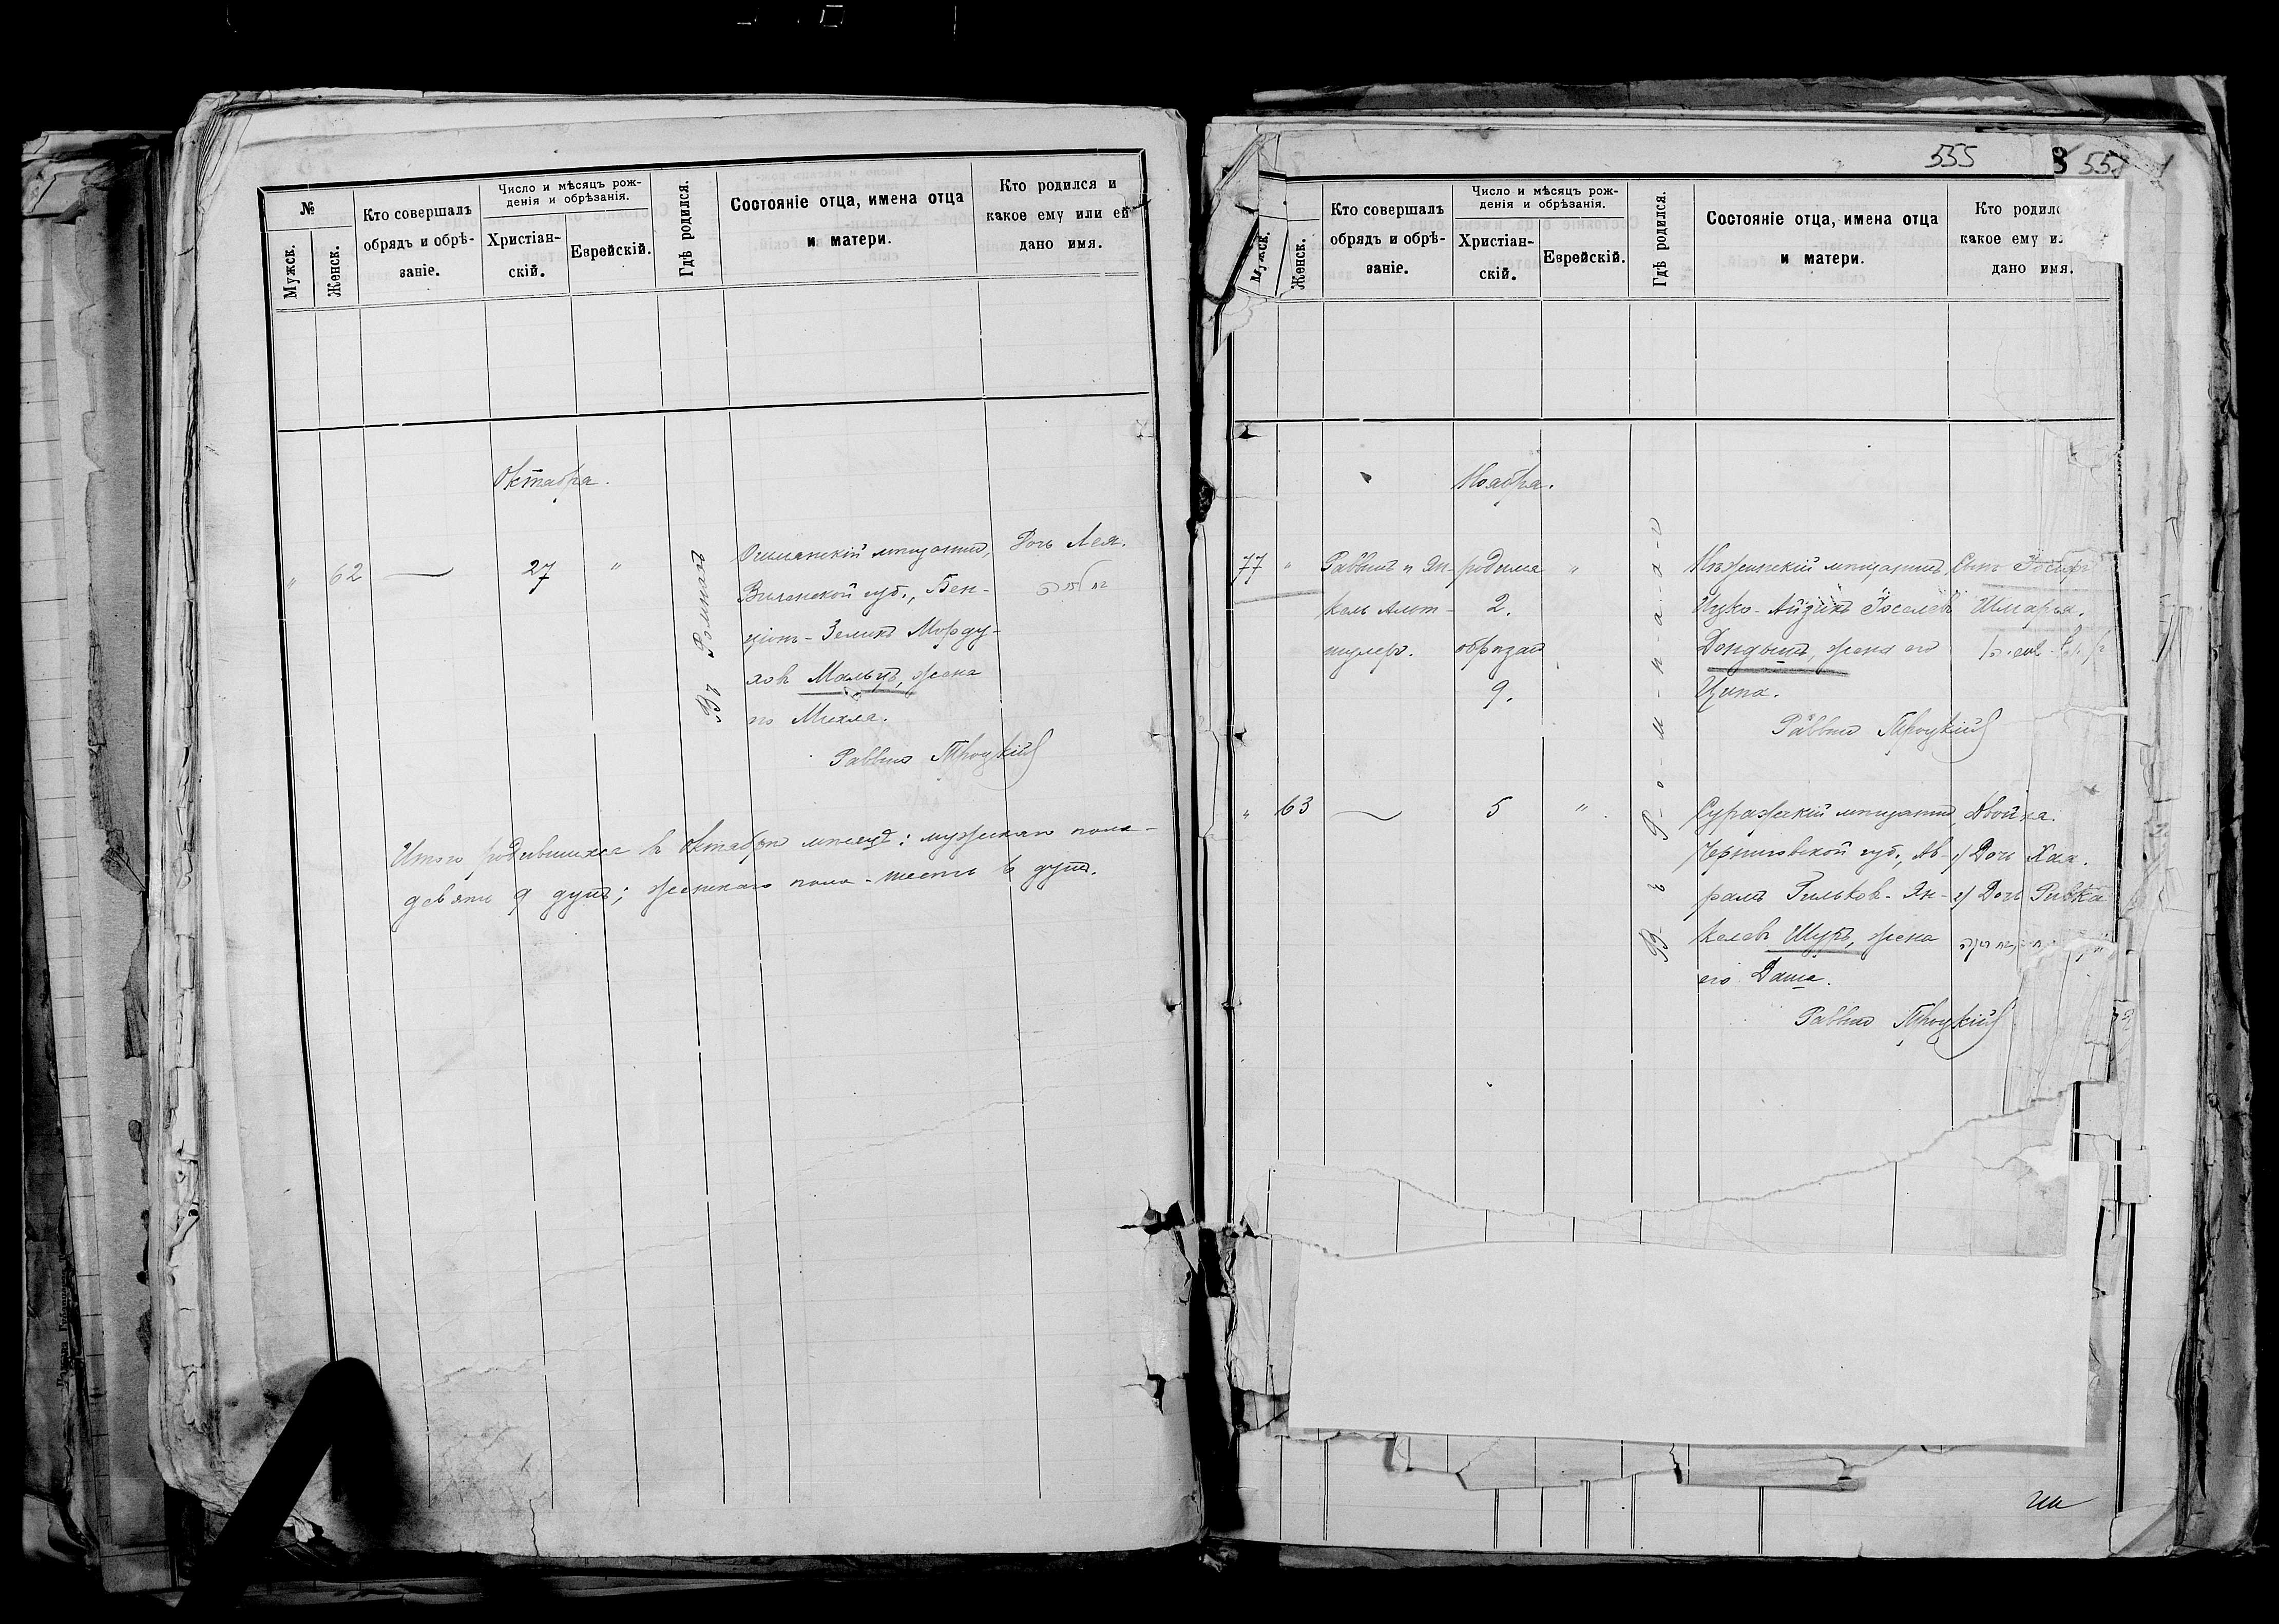 №
Мужск.
Женск.
Кто совершалъ
обрядъ и обрѣ-
заніе.
Число и мѣсяцъ рож-
денія и обрѣзанія.
Христіан-
скій.
Еврейскій.
Гдѣ родился.
Состояніе отца, имена отца
и матери.
Кто родился и
какое ему или ей
дано имя.
Октября.
" 62 — 27 "
Въ Ромнахъ
Ошмянскій мѣщанинъ,
Виленской губ., Бен-
ціонъ-Зеликъ Морду-
ховъ Мальцъ, жена
его Михля.
Раввинъ Троцкій
Дочь Лея.
Итого родившихся въ Октябрѣ мѣсяцѣ: мужскаго пола -
девять 9 душъ; женскаго пола - шесть 6 душъ.
555
Мужск.
Женск.
Кто совершалъ
обрядъ и обрѣ-
заніе.
Число и мѣсяцъ рож-
денія и обрѣзанія.
Христіан-
скій.
Еврейскій.
Гдѣ родился.
Состояніе отца, имена отца
и матери.
Кто родилс
какое ему и
дано имя.
Ноября.
77 "
Раввинъ и Ян-
кель Альт-
шулеръ.
родился
2.
обрѣзанъ
9.
"
В-ъ Р-о-м-н-а-х-ъ
Нѣжинскій мѣщанинъ
Ицко-Айзикъ Іоселевъ
Дондышъ, жена его
Ципа.
Раввинъ Троцкій
Сынъ
Шмарья.
" 63 — 5 "
Суражскій мѣщанинъ
Черниговской губ., Аб-
рамъ Гильков-Ян-
келевъ Шуръ, жена
его Даша.
Раввинъ Троцкій
Двойня.
1) Дочь Хая.
2) Дочь Ривка